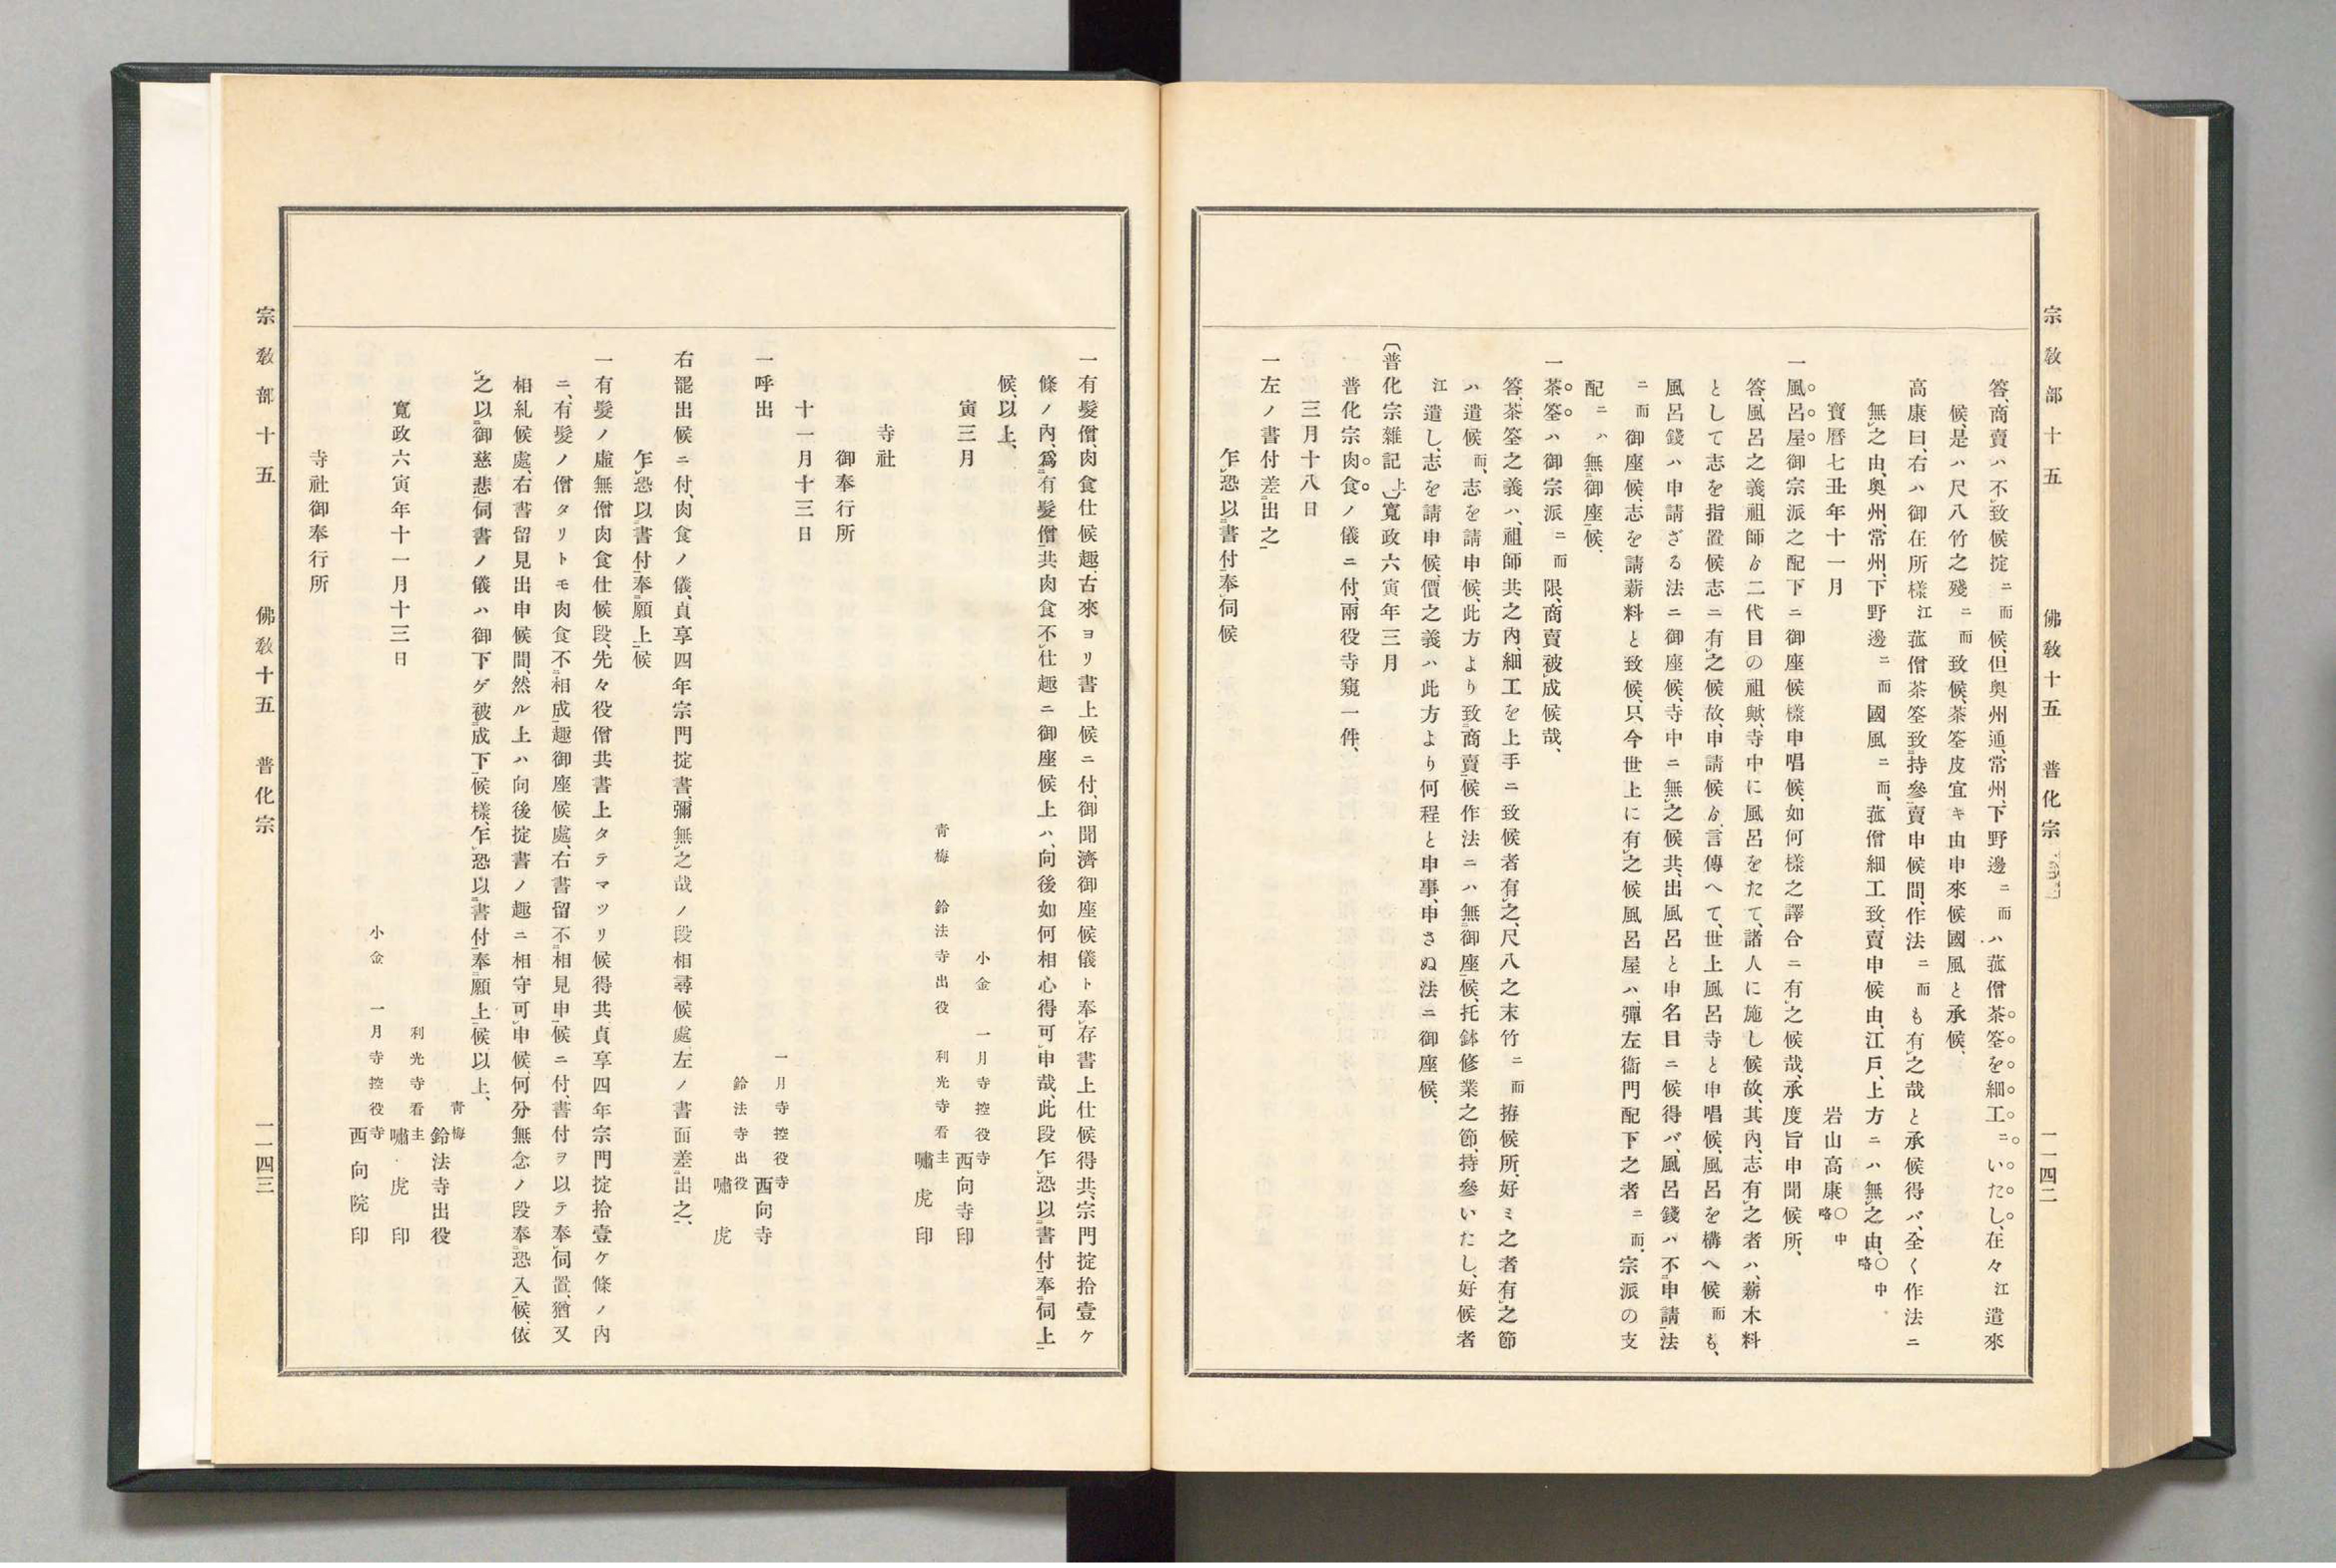 宗敎部十五　佛敎十五　普化宗　一一四二
答、商賣ハ不致候掟ニ而候、但奥州通、常州、下野邊ニ而ハ菰僧茶筌を細工ニいたし、在々江遣來
候、是ハ尺八竹之殘ニ而致候、茶筌皮宜キ由申來候國風と承候、
高康曰、右ハ御在所樣江菰僧茶筌致持參賣申候間、作法ニ而も有之哉と承候得バ、全く作法ニ
無之由、奥州、常州、下野邊ニ而國風ニ而、菰僧細工致、賣申候由、江戸、上方ニハ無之由、○中略
寶曆七丑年十一月　岩山高康○中略
一風呂屋御宗派之配下ニ御座候樣申唱候、如何樣之譯合ニ有之候哉、承度旨申聞候所、
答、風呂之義、祖師ゟ二代目の祖歟、寺中に風呂をたて、諸人に施し候故、其內、志有之者ハ、薪木料
として志を指置候志ニ有之候故、申請候ゟ、言傳へて、世上風呂寺と申唱候、風呂を構へ候而も、
風呂錢ハ申請ざる法ニ御座候、寺中ニ無之候共、出風呂と申名目ニ候得バ、風呂錢ハ不申請法
ニ而御座候、志を請薪料と致候、只今世上に有之候風呂屋ハ、彈左衞門配下之者ニ而、宗派の支
配ニハ無御座候、
一茶筌ハ御宗派ニ而限、商賣被成候哉、
答、茶筌之義ハ、祖師共之內、細工を上手ニ致候者有之、尺八之末竹ニ而拵候所、好ミ之者有之節
ハ遣候而、志を請申候、此方より致商賣候作法ニハ無御座候、托鉢修業之節、持參いたし、好候者
江遣し、志を請申候、價之義ハ此方より何程と申事、申さぬ法ニ御座候、
〔普化宗雜記上〕寬政六寅年三月
普化宗肉食ノ儀ニ付、兩役寺窺一件、
三月十八日
一左ノ書付差出之
乍恐以書付奉伺候
一有髮僧、肉食仕候趣、古來ヨリ書上候ニ付、御聞濟御座候儀ト奉存書上仕候得共、宗門掟拾壹ケ
條ノ內、爲有髮僧共肉食不仕趣ニ御座候上ハ、向後如何相心得可申哉、此段乍恐以書付奉伺上
候、以上、
寅三月　小金　一月寺控役寺　西向寺印
靑梅　鈴法寺出役　利光寺看主　嘯虎　印
寺社
御奉行所
十一月十三日
一呼出　一月寺控役寺　西向寺
鈴法寺出役　嘯虎
右罷出候ニ付、肉食ノ儀、貞享四年宗門掟書、彌無之哉ノ段相尋候處、左ノ書面差出之、
乍恐以書付奉願上候
一有髮ノ虛無僧肉食仕候段、先々役僧共書上タテマツリ候得共貞享四年宗門掟拾壹ケ條ノ內
ニ、有髮ノ僧タリトモ肉食不相成趣御座候處、右書留不相見申候ニ付、書付ヲ以テ奉伺置、猶又
相糺候處、右書留見出申候間、然ル上ハ向後掟書ノ趣ニ相守可申候、何分無念ノ段奉恐入候、依
之以御慈悲、伺書ノ儀ハ御下ゲ被成下候樣、乍恐以書付奉願上候以上、
靑梅　鈴法寺出役
寬政六寅年十一月十三日　利光寺看主　嘯虎　印
小金　一月寺控役寺　西向院印
寺社御奉行所
宗敎部十五　佛敎十五　普化宗　一一四三